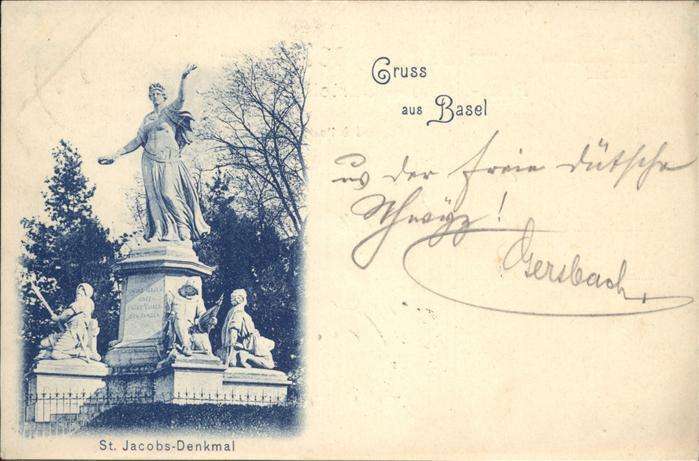 Gruss
aus Basel
us der freie dütsche
Schwÿz!
Gersbach
St. Jacobs-Denkmal